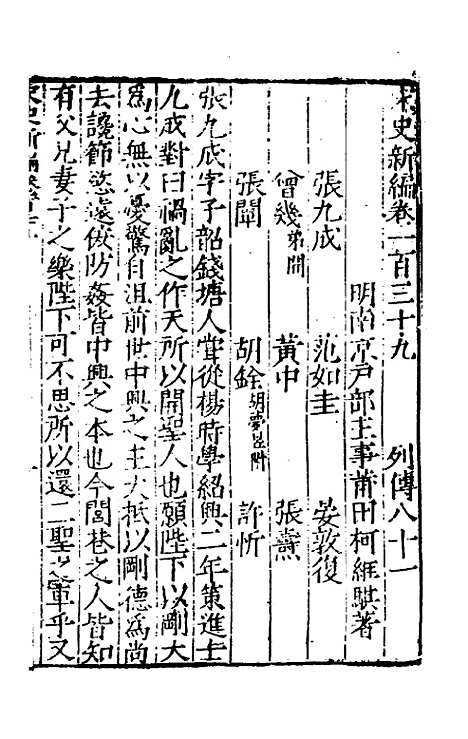 宋史新編卷一百三十九 列傳八十一
明南京戶部主事莆田柯維騏著
張九成 范如圭 晏敦復
曾幾弟開 黃中 張燾
張闡 胡銓胡夢昱附 許忻
張九成字子韶錢塘人嘗從楊時學紹興二年策進士
九成對曰禍亂之作天所以開聖人也願陛下以剛大
為心無以憂驚自沮前世中興之主大抵以剛德為尚
去讒節慾遠佞防姦皆中興之本也今閭巷之人皆知
有父兄妻子之樂陛下可不思所以還二聖之車乎又
宋史新編卷